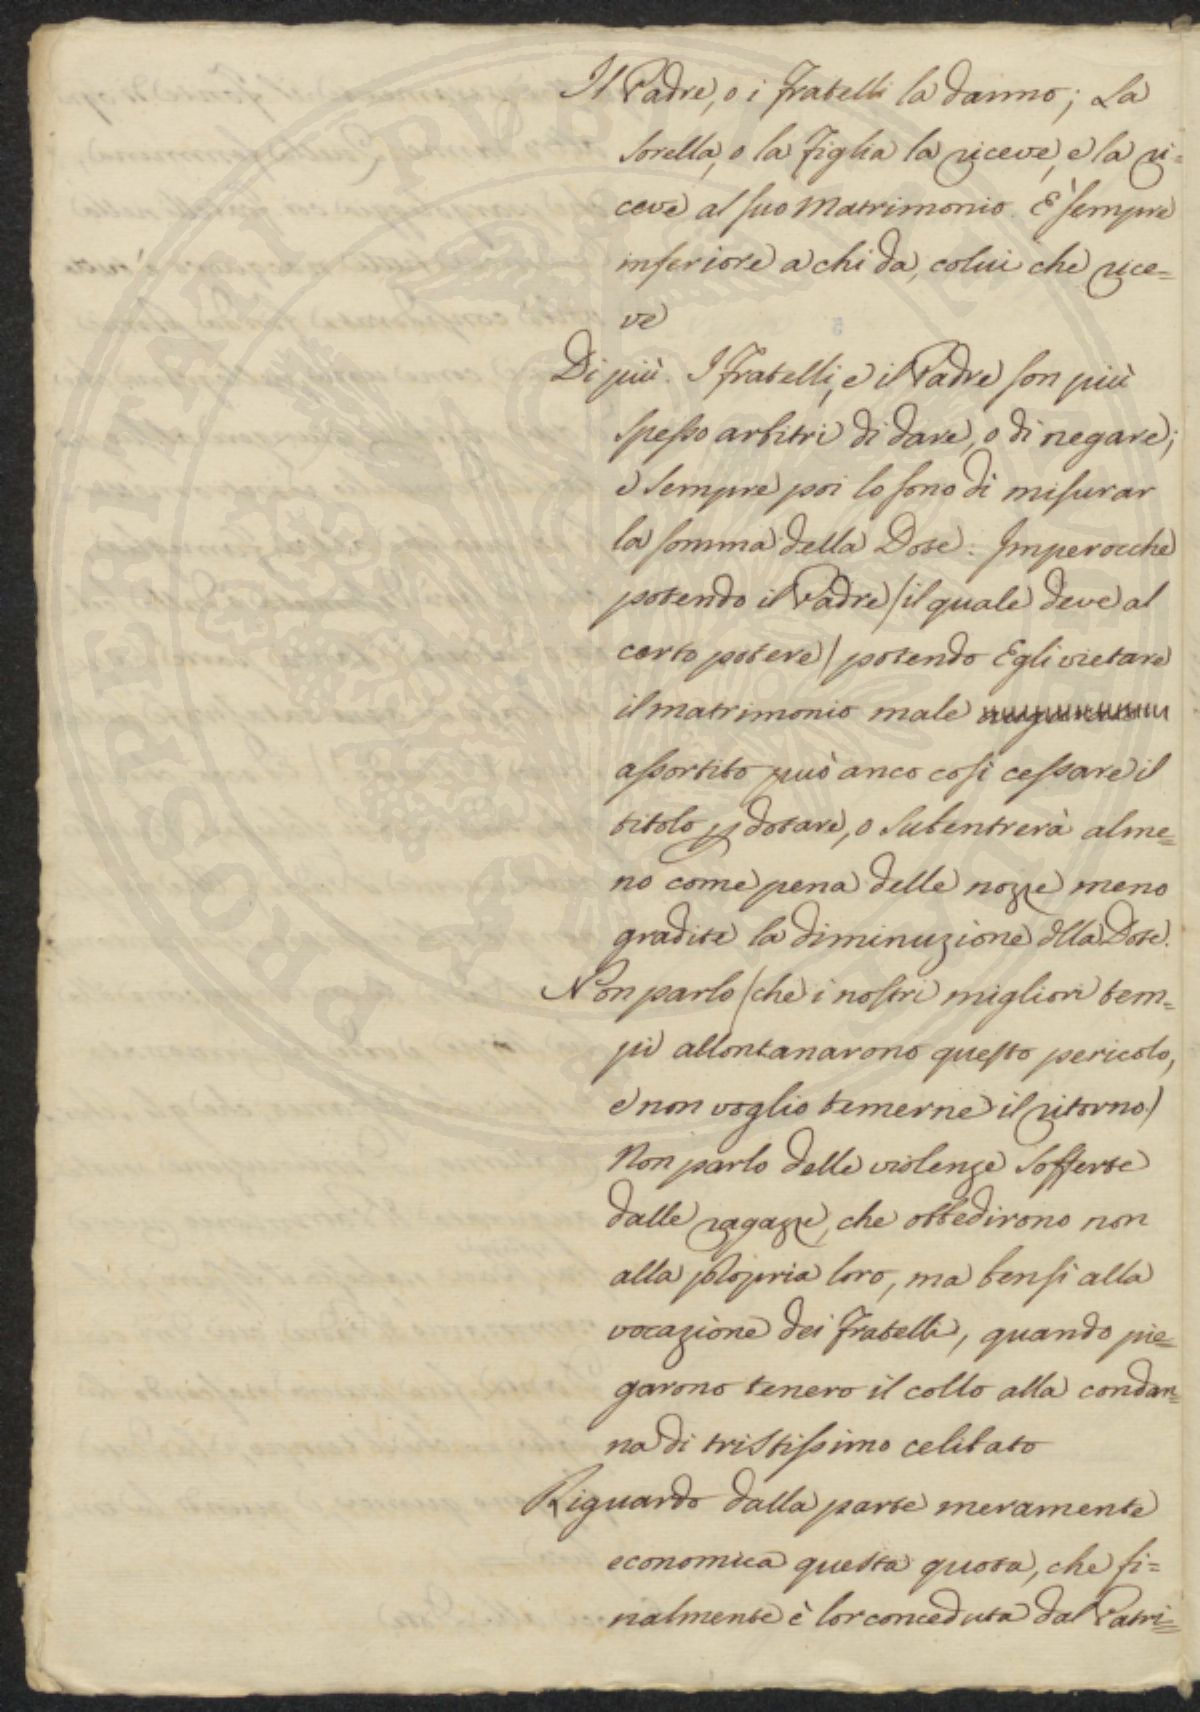 Il Padre, o i Fratelli la danno; La
sorella, o la Figlia la riceve, e la ri=
ceve al suo Matrimonio. È sempre
inferiore a chi da, colui che rice=
ve
Di più. I Fratelli, e il Padre son più
spesso arbitri di dare, o di negare;
e sempre poi lo sono di misurar
la somma della Dote. Imperocche
potendo il Padre / il quale deve al
certo potere / potendo Egli vietare
il matrimonio male
assortito può anco così cessare il
titolo p dotare, o subentrerà alme=
no come pena delle nozze meno
gradite la diminuzione dlla Dote.
Non parlo / che i nostri migliori tem=
pi allontanarono questo pericolo,
e non voglio temerne il ritorno /
Non parlo delle violenze sofferte
dalle ragazze, che obbedirono non
alla propria loro, ma bensì alla
vocazione dei Fratelli, quando pie=
garono tenero il collo alla condan=
na di tristissimo celibato
Riguardo dalla parte meramente
economica questa quota, che fi=
nalmente è lor conceduta dal Patri=
PROSPERITATI PUBLICAE